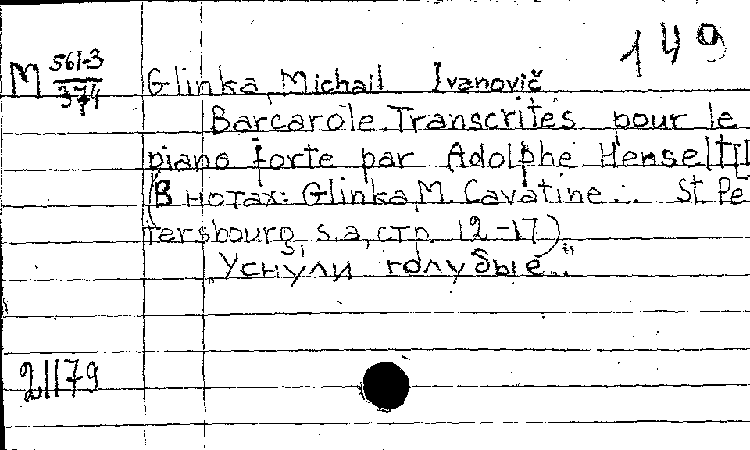 149
M 561-3
374
Glinka, Michail Ivanovič
Barcarole. Transcrites pour le
piano forte par Adolphe Henselt
(В нотах: Glinka, M. Cavatine... St. Pe
tersbourg, s.a, стр. 12-17)
"Уснули голубые..."
21179